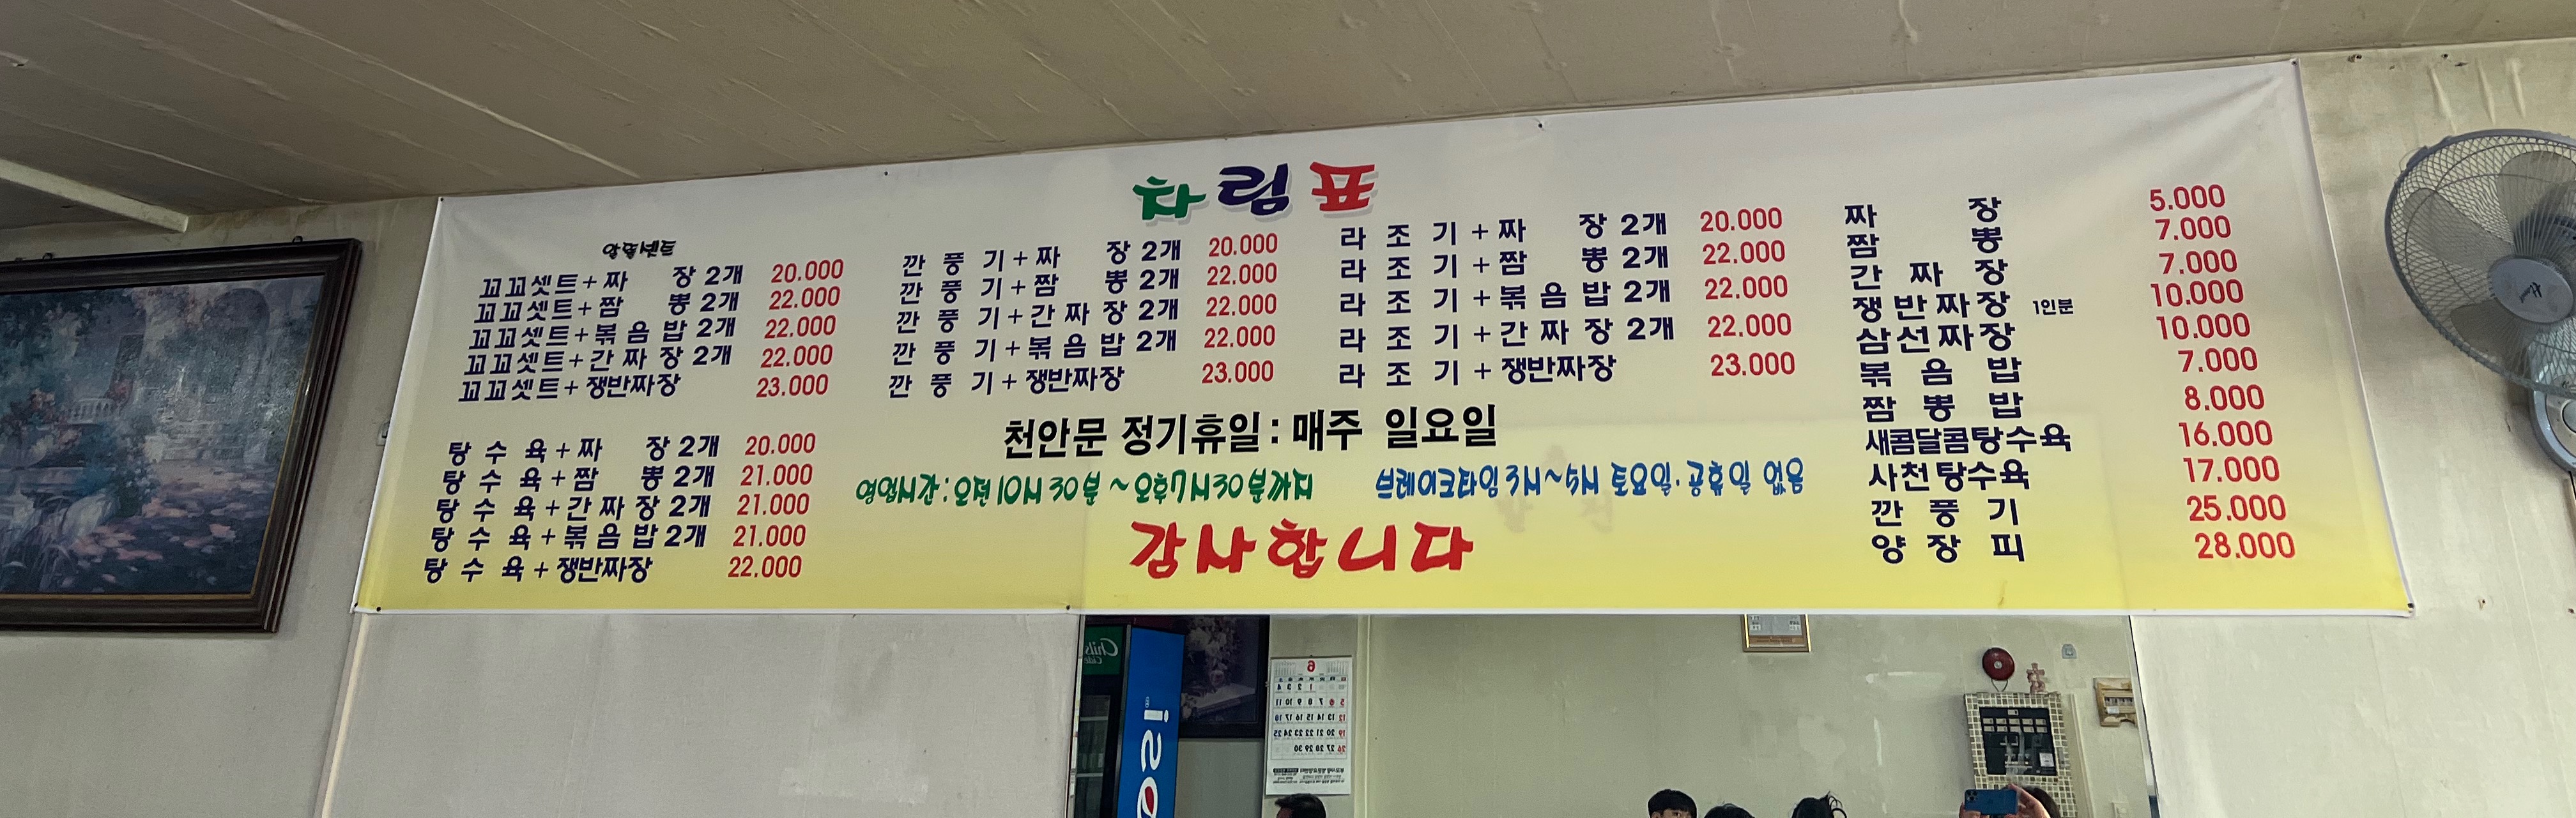 차림표
양많은세트
꼬꼬셋트+짜 장 2개 20.000
꼬꼬셋트+짬 뽕 2개 22.000
꼬꼬셋트+볶음밥 2개 22.000
꼬꼬셋트+간짜장 2개 22.000
꼬꼬셋트+쟁반짜장 23.000
탕 수 육+짜 장 2개 20.000
탕 수 육+짬 뽕 2개 21.000
탕 수 육+간짜장 2개 21.000
탕 수 육+볶음밥 2개 21.000
탕 수 육+쟁반짜장 22.000
깐 풍 기+짜 장 2개 20.000
깐 풍 기+짬 뽕 2개 22.000
깐 풍 기+간짜장 2개 22.000
깐 풍 기+볶음밥 2개 22.000
깐 풍 기+쟁반짜장 23.000
라 조 기+짜 장 2개 20.000
라 조 기+짬 뽕 2개 22.000
라 조 기+볶음밥 2개 22.000
라 조 기+간짜장 2개 22.000
라 조 기+쟁반짜장 23.000
천안문 정기휴일 : 매주 일요일
영업시간 : 오전 10시 30분 ~ 오후 7시 30분까지
브레이크타임 3시~5시 토요일·공휴일 없음
감사합니다
짜 장 5.000
짬 뽕 7.000
간 짜 장 7.000
쟁반짜장 1인분 10.000
삼선짜장 10.000
볶 음 밥 7.000
짬 뽕 밥 8.000
새콤달콤탕수육 16.000
사천탕수육 17.000
깐 풍 기 25.000
양 장 피 28.000